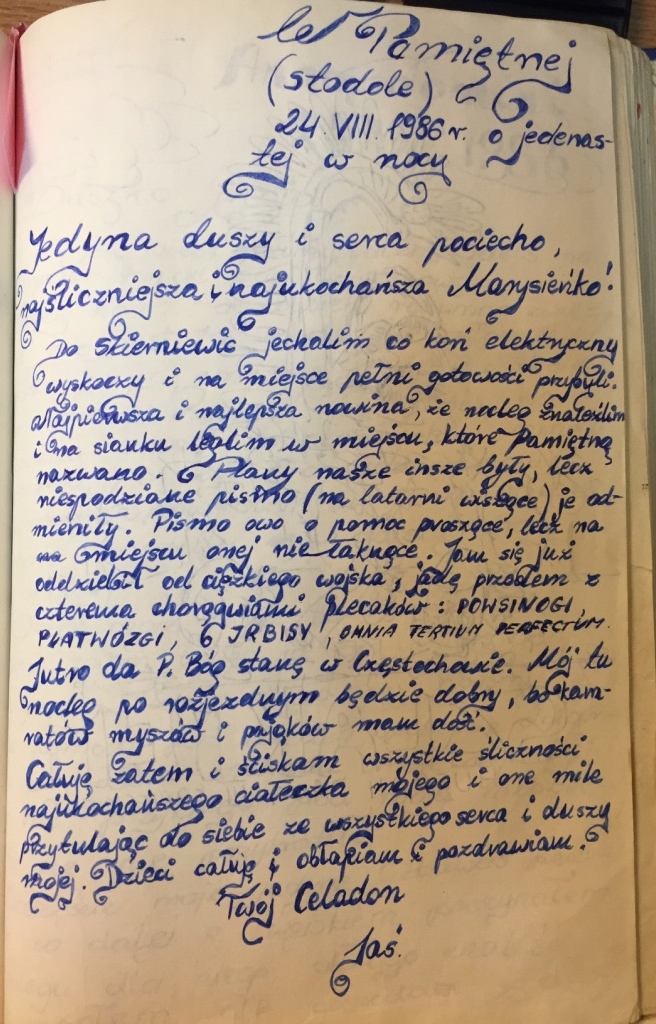 W Pamiętnej
(stodole)
24. VIII. 1986 r. o jedenas-
tej w nocy
Jedyna duszy i serca pociecho,
najśliczniejsza i najukochańsza Marysieńko!
Do Skierniewic jechalim co koń elektryczny
wyskoczy i na miejsce pełni gotowości przybyli.
Najpierwsza i najlepsza nowina, że nocleg znaleźlim
i na sianku leglim w miejscu, które Pamiętną
nazwano. Plany nasze insze były, lecz
niespodziane pismo (na latarni wiszące) je od-
mieniły. Pismo owo o pomoc proszące, lecz na
miejscu onej nie łaknące. Jam się już
oddzielał od ciężkiego wojska, jadę przodem z
czterema chorągwiami plecaków: POWSINOGI,
PŁATWÓZGI, 6 IRBISY, OMNIA TERTIUM PERFECTUM.
Jutro da P. Bóg stanę w Częstochowie. Mój tu
nocleg po rozjezdnym będzie dobry, bo kam-
ratów myszów i pająków mam dość.
Całuję zatem i ściskam wszystkie śliczności
najukochańszego ciałeczka mojego i one mile
przytulając do siebie ze wszystkiego serca i duszy
mojej. Dzieci całuję i obłapiam i pozdrawiam.
Twój Celadon
Jaś.